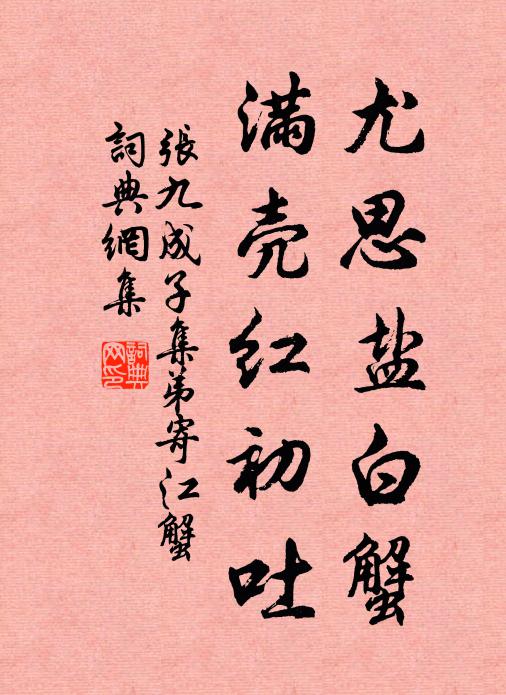 尤思盐白蟹
满壳红初吐
張九成子集弟寄江蟹
詞典網集
詞典网印